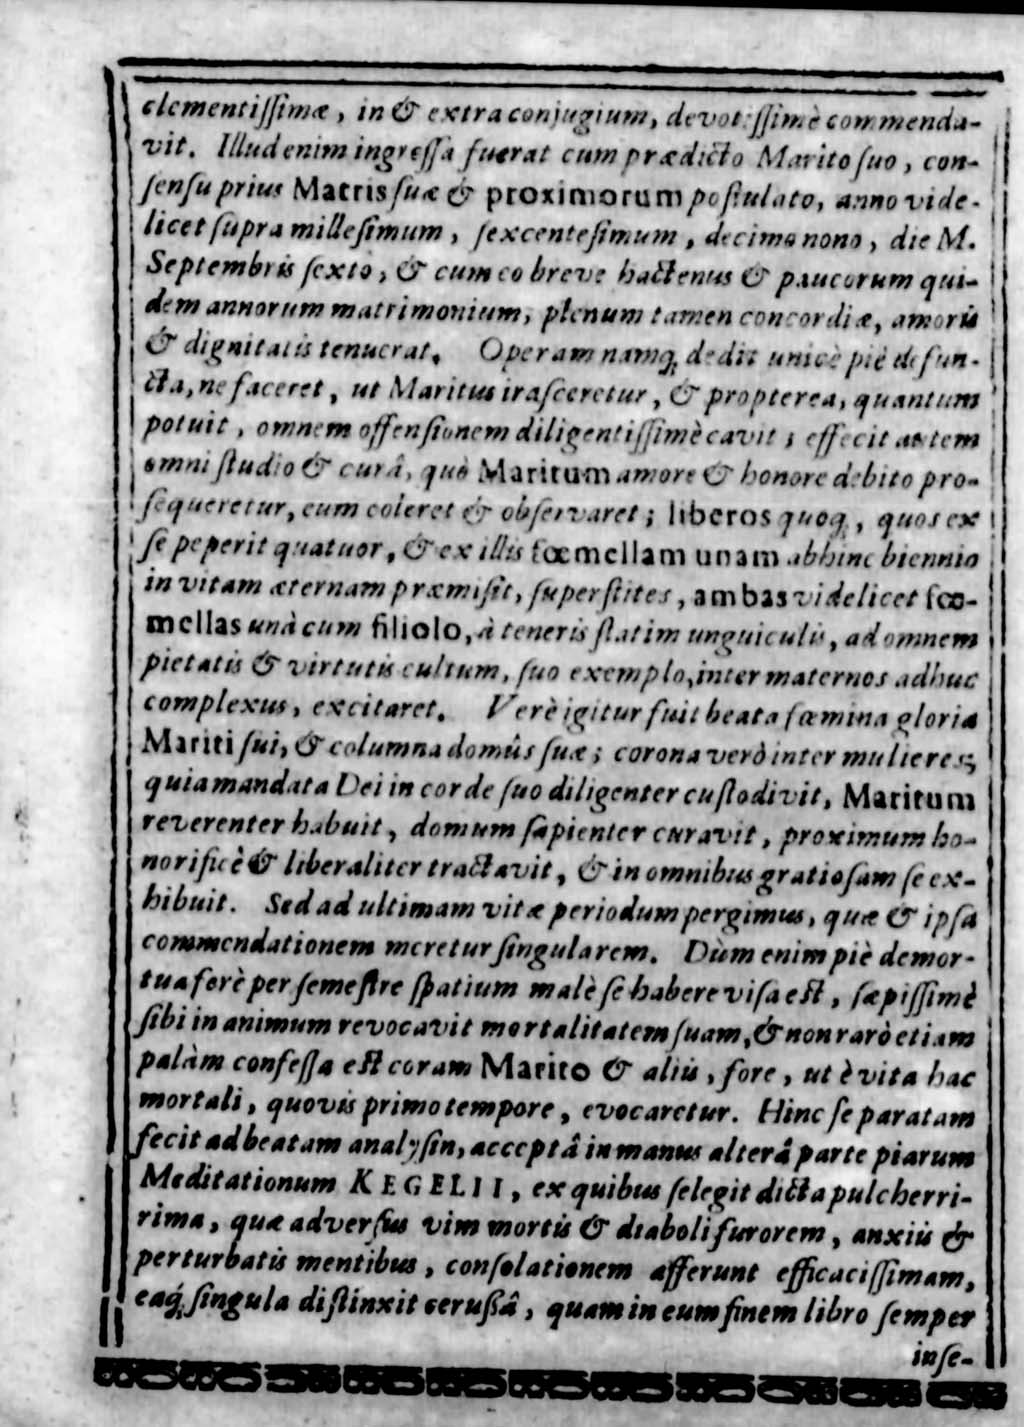 clementiſſimæ, in & extra conjugium, devotiſſimè commenda-
vit. Illud enim ingreſſa fuerat cum prædicto Marito ſuo, con-
ſenſu prius Matris ſuæ & proximorum poſtulato, anno vide-
licet ſupra milleſimum, ſexcenteſimum, decimo nono, die M.
Septembris ſexto, & cum eo breve hactenus & paucorum qui-
dem annorum matrimonium, plenum tamen concordiæ, amoris
& dignitatis tenuerat. Operam namq; dedit unicè piè defun-
cta, ne faceret, ut Maritus iraſceretur, & propterea, quantum
potuit, omnem offenſionem diligentiſſimè cavit; effecit autem
omni ſtudio & curâ, quò Maritum amore & honore debito pro-
ſequeretur, eum coleret & obſervaret; liberos quoq;, quos ex
ſe peperit quatuor, & ex illis fœmellam unam abhinc biennio
in vitam æternam præmiſit, ſuperſtites, ambas videlicet fœ-
mellas unà cum filiolo, à teneris ſtatim unguiculis, ad omnem
pietatis & virtutis cultum, ſuo exemplo, inter maternos adhuc
complexus, excitaret. Verè igitur fuit beata fœmina gloria
Mariti ſui, & columna domûs ſuæ; corona verò inter mulieres;
quia mandata Dei in corde ſuo diligenter cuſtodivit, Maritum
reverenter habuit, domum ſapienter curavit, proximum ho-
norificè & liberaliter tractavit, & in omnibus gratioſam ſe ex-
hibuit. Sed ad ultimam vitæ periodum pergimus, quæ & ipſa
commendationem meretur ſingularem. Dùm enim piè demor-
tua ferè per ſemeſtre ſpatium malè ſe habere viſa eſt, ſæpiſſimè
ſibi in animum revocavit mortalitatem ſuam, & non rarò etiam
palàm confeſſa eſt coram Marito & aliis, fore, ut è vita hac
mortali, quovis primo tempore, evocaretur. Hinc ſe paratam
fecit ad beatam analyſin, acceptâ in manus alterâ parte piarum
Meditationum KEGELII, ex quibus ſelegit dicta pulcherri-
rima, quæ adverſus vim mortis & diaboli furorem, anxiis &
perturbatis mentibus, conſolationem afferunt efficaciſſimam,
eaq́; ſingula diſtinxit cerußâ, quam in eum finem libro ſemper
inſe-